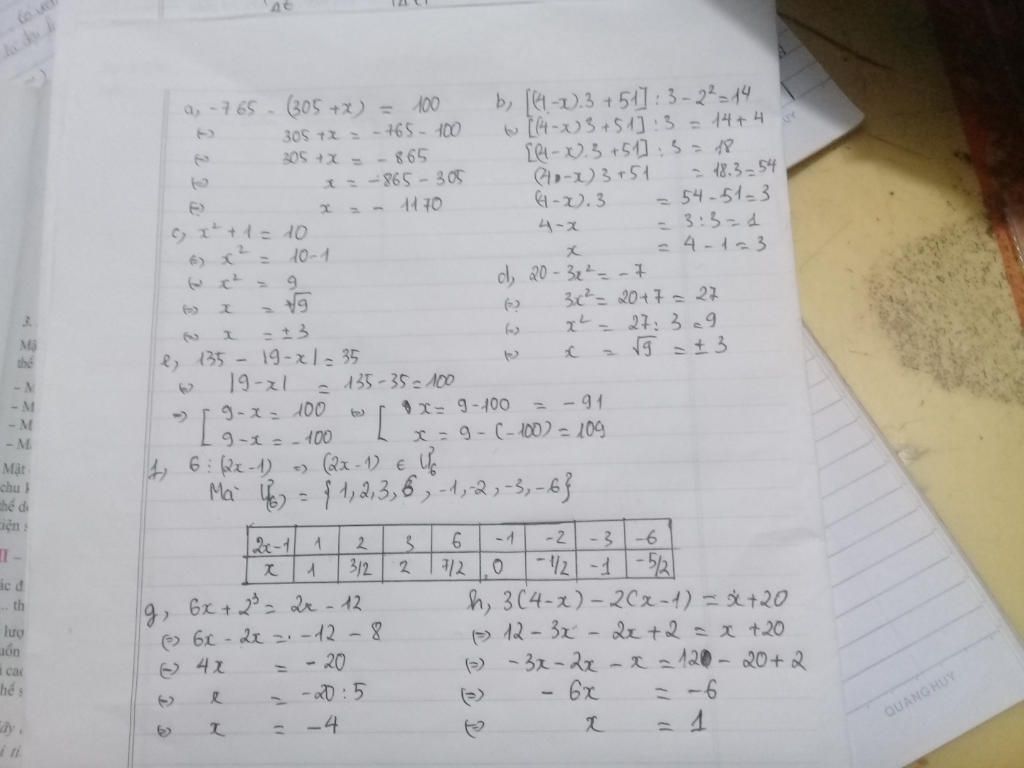 a, -765 - (305 + x) = 100
(=) 305 + x = -765 - 100
(=) 305 + x = - 865
(=) x = -865 - 305
(=) x = - 1170
b, [(4-x).3 + 51] : 3 - 2² = 14
(=) [(4-x)3 + 51] : 3 = 14 + 4
[(4-x).3 + 51] : 3 = 18
(4-x)3 + 51 = 18.3 = 54
(4-x).3 = 54 - 51 = 3
4-x = 3:3 = 1
x = 4 - 1 = 3
c, x² + 1 = 10
(=) x² = 10-1
(=) x² = 9
(=) x = √9
(=) x = ±3
d, 20 - 3x² = -7
(=) 3x² = 20+7 = 27
(=) x² = 27:3 = 9
(=) x = √9 = ±3
e, 135 - |9-x| = 35
(=) |9-x| = 135-35 = 100
=) [ 9-x = 100 (=) [ x = 9-100 = -91
9-x = -100 x = 9-(-100) = 109
f, 6 : (2x-1) => (2x-1) ∈ Ư6
Mà Ư(6) = {1, 2, 3, 6, -1, -2, -3, -6}
2x-1 1 2 3 6 -1 -2 -3 -6
x 1 3/2 2 7/2 0 -1/2 -1 -5/2
g, 6x + 2³ = 2x - 12
(=) 6x - 2x = -12 - 8
(=) 4x = -20
(=) x = -20 : 5
(=) x = -4
h, 3(4-x) - 2(x-1) = x+20
(=) 12 - 3x - 2x + 2 = x + 20
(=) -3x - 2x - x = 12 - 20 + 2
(=) - 6x = -6
(=) x = 1
QUANG HUY